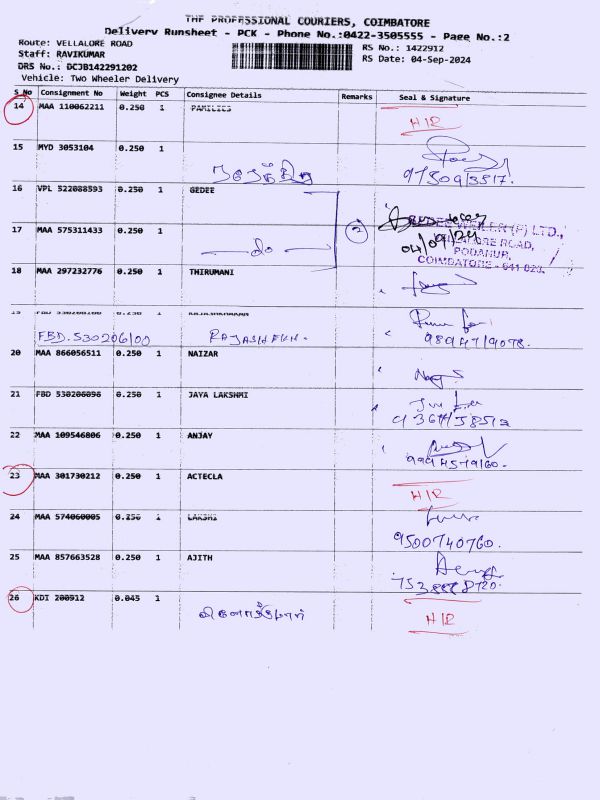 THE PROFESSIONAL COURIERS, COIMBATORE
Delivery Runsheet - PCK - Phone No.:0422-3505555 - Page No.:2
Route: VELLALORE ROAD
RS No.: 1422912
Staff: RAVIKUMAR
RS Date: 04-Sep-2024
DRS No.: DCJB142291202
Vehicle: Two Wheeler Delivery
S No Consignment No Weight PCS Consignee Details Remarks Seal & Signature
14 MAA 110062211 0.250 1 FAMILIES
H/R
15 MYD 3053104 0.250 1
16 VPL 522088593 0.250 1 GEDEE
17 MAA 575311433 0.250 1 do 2
04/09/24
ROAD,
PODANUR,
COIMBATORE - 641 023.
18 MAA 297232776 0.250 1 THIRUMANI
19 FBD 530206100 0.250 1 RAJASHKHARAN
FBD.530206100 RAJASHEKH.
9894719078.
20 MAA 866056511 0.250 1 NAIZAR
21 FBD 530206096 0.250 1 JAYA LAKSHMI
22 MAA 109546806 0.250 1 ANJAY
9994579160.
23 MAA 301730212 0.250 1 ACTECLA
H/R
24 MAA 574060005 0.250 1 LAKSHI
9500740760.
25 MAA 857663528 0.250 1 AJITH
26 KDI 200912 0.045 1
H/R